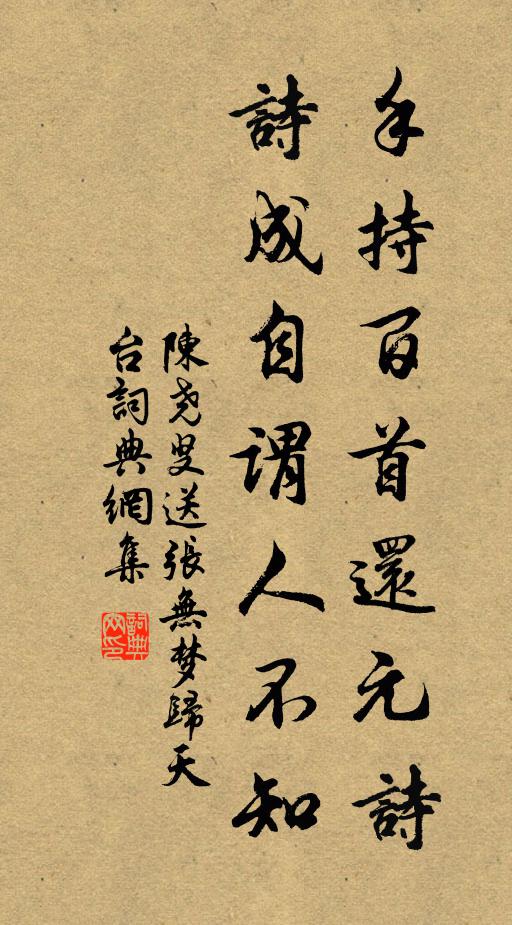 手持百首還元詩
詩成自謂人不知
陳堯叟送張無梦歸天
台詞典網集
詞典
网印